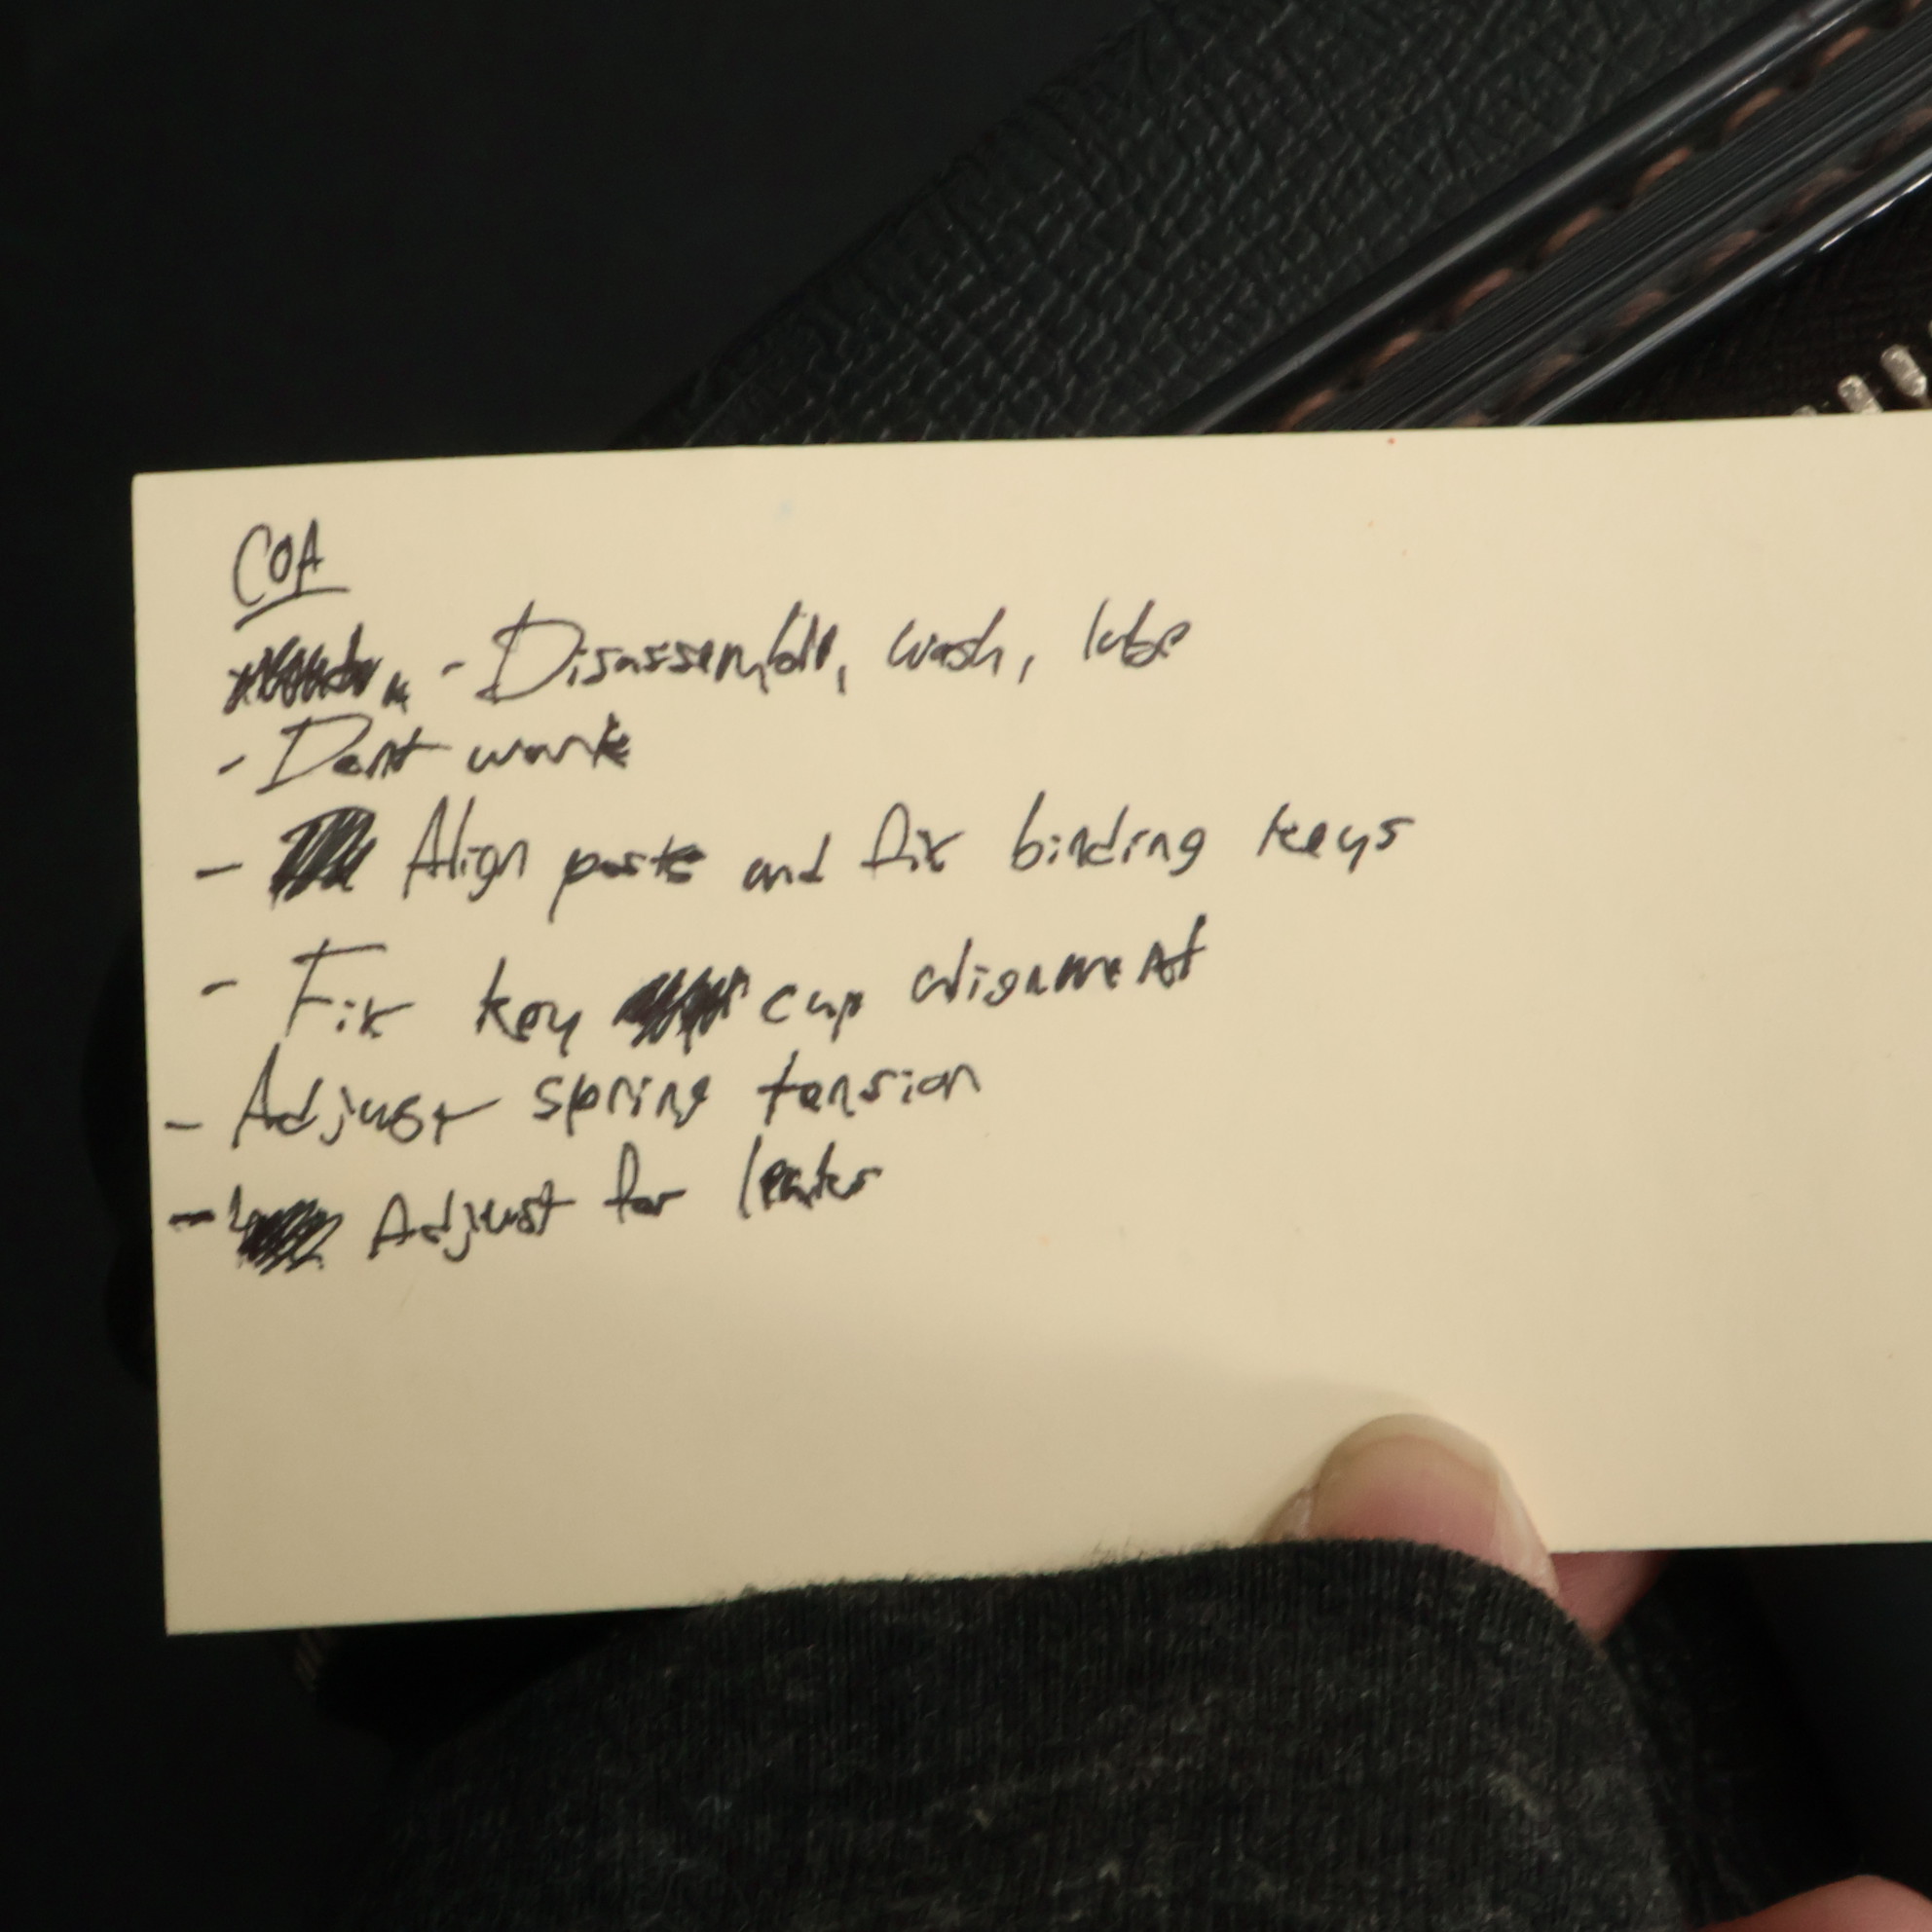 COA
- Disassemble, wash, lube
- Dent work
- Align posts and fix binding keys
- Fix key cup alignment
- Adjust spring tension
- Adjust for leaks